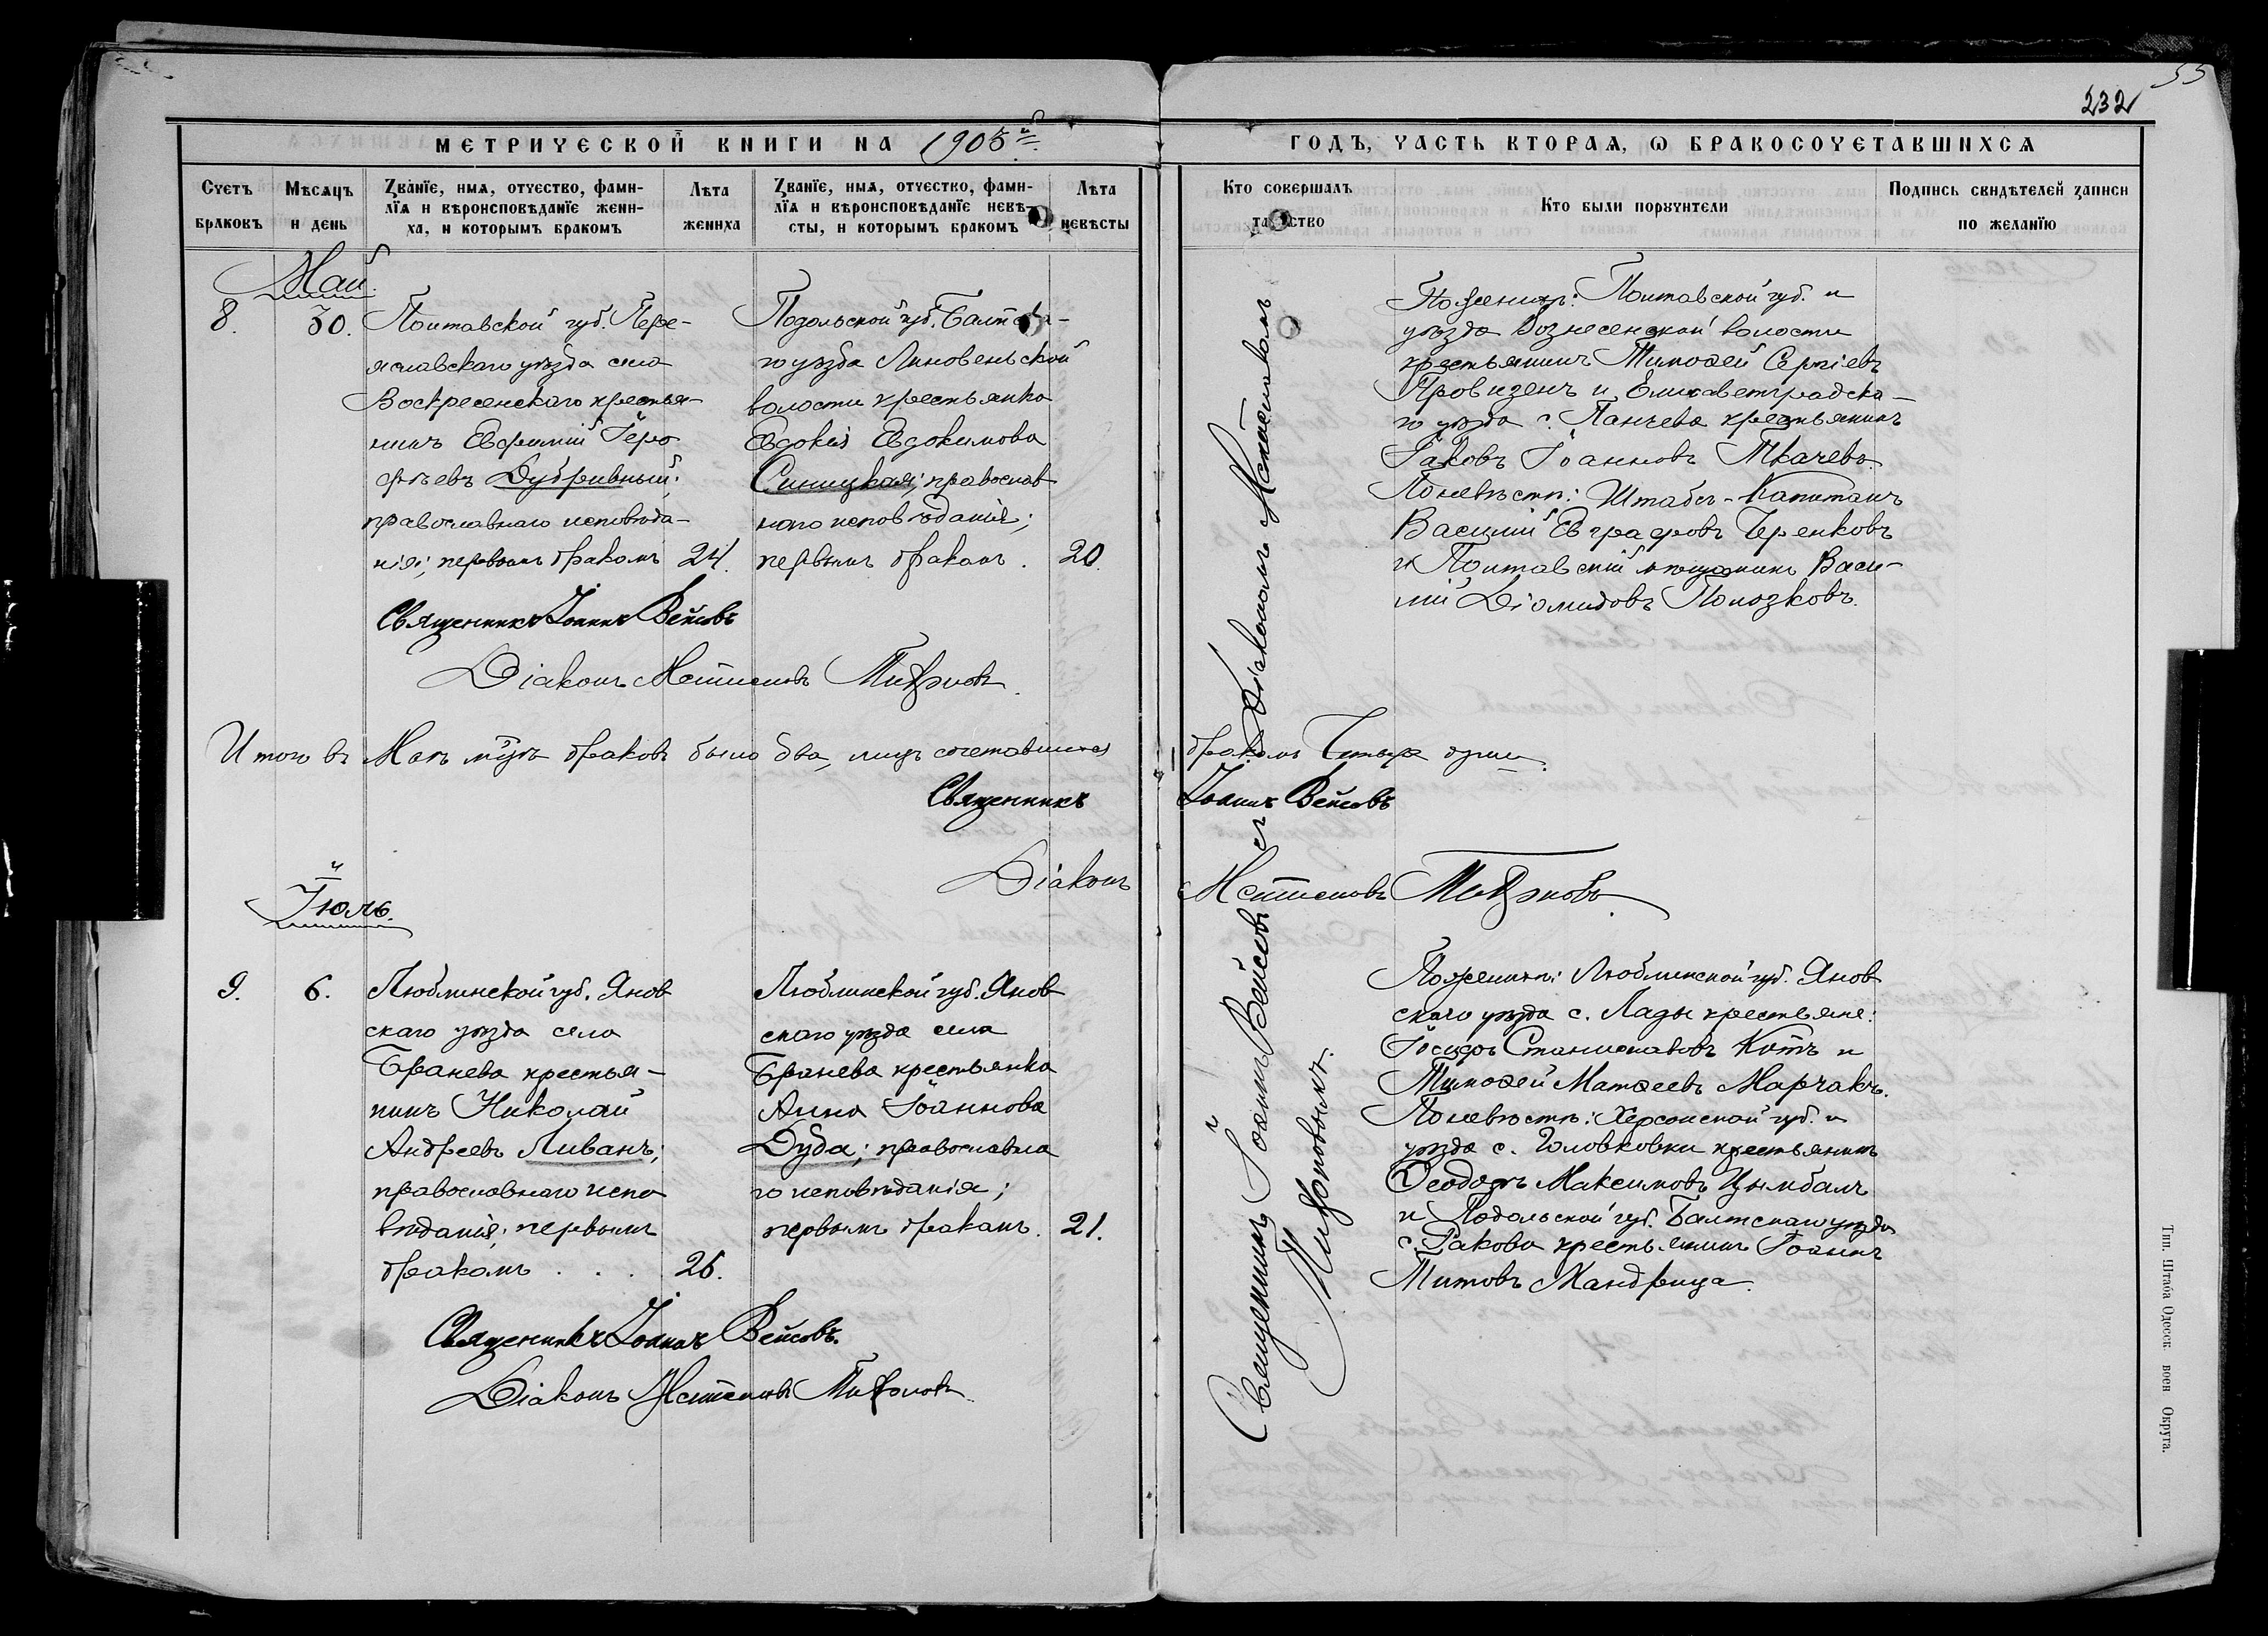 55
232
МЕТРИЧЕСКОЙ КНИГИ НА 1905й
ГОДЪ, ЧАСТЬ ВТОРАѦ, Ѡ БРАКОСОЧЕТАВШИХСѦ
Счетъ браковъ
Мѣсѧцъ и день
Званїе, имѧ, отчество, фами-
лїѧ и вѣроисповѣданїе жени-
ха, и которымъ бракомъ
Лѣта жениха
Званїе, имѧ, отчество, фами-
лїѧ и вѣроисповѣданїе невѣ-
сты, и которымъ бракомъ
Лѣта невѣсты
Кто совершалъ
таинство
Кто были поручители
Подпись свидѣтелей записи
по желанїю
Май.
8.
30.
Полтавской губ. Пере-
яславскаго уѣзда села
Воскресенскаго крестья-
нинъ Евфимій Іеро
фѣевъ Дубривный;
православнаго исповѣда-
нія; первымъ бракомъ
24.
Подольской губ. Балтска-
го уѣзда Линовеньской
волости крестьянка
Евдокія Евдокимова
Синицкая; православ
наго исповѣданія;
первымъ бракомъ.
20.
Священникъ Іоаннъ Вейсовъ
Діаконъ Мстиславъ
По женихѣ: Полтавской губ. и
уѣзда Вознесенской волости
крестьянинъ Тимоѳей Сергіевъ
Провизенъ и Елисаветградска-
го уѣзда с. Панчева крестьянинъ
Іаковъ Іоанновъ Ткачевъ.
По невѣстѣ: Штабсъ-Капитанъ
Василій Евграфовъ Черенковъ
и Полтавскій мѣщанинъ Васи-
лій Діомидовъ Полозковъ.
Священникъ Іоаннъ Вейсовъ съ Діакономъ Мстиславомъ
Итого въ Маѣ мѣсяцѣ браковъ было два, лицъ сочетавшихся
бракомъ Четыре души.
Священникъ
Іоаннъ Вейсовъ
Діаконъ
Мстиславъ
Іюль.
9.
6.
Люблинской губ. Янов
скаго уѣзда села
Бранева крестья-
нинъ Николай
Андреевъ Ливанъ;
православнаго испо
вѣданія; первымъ
бракомъ . . .
26.
Люблинской губ. Янов
скаго уѣзда села
Бранева крестьянка
Анна Іоаннова
Дуба; православна
го исповѣданія;
первымъ бракомъ.
21.
Священникъ Іоаннъ Вейсовъ.
Діаконъ Мстиславъ
По женихѣ: Люблинской губ. Янов
скаго уѣзда с. Лады крестьяне:
Іосифъ Станиславовъ Котъ и
Тимоѳей Матѳеевъ Марчакъ.
По невѣстѣ: Херсонской губ. и
уѣзда с. Головковки крестьянинъ
Ѳеодоръ Максимовъ Цымбалъ
и Подольской губ. Балтскаго уѣзда
с. Ракова крестьянинъ Іоаннъ
Титовъ Мандрица.
Тип. Штаба Одесск. воен Округа.